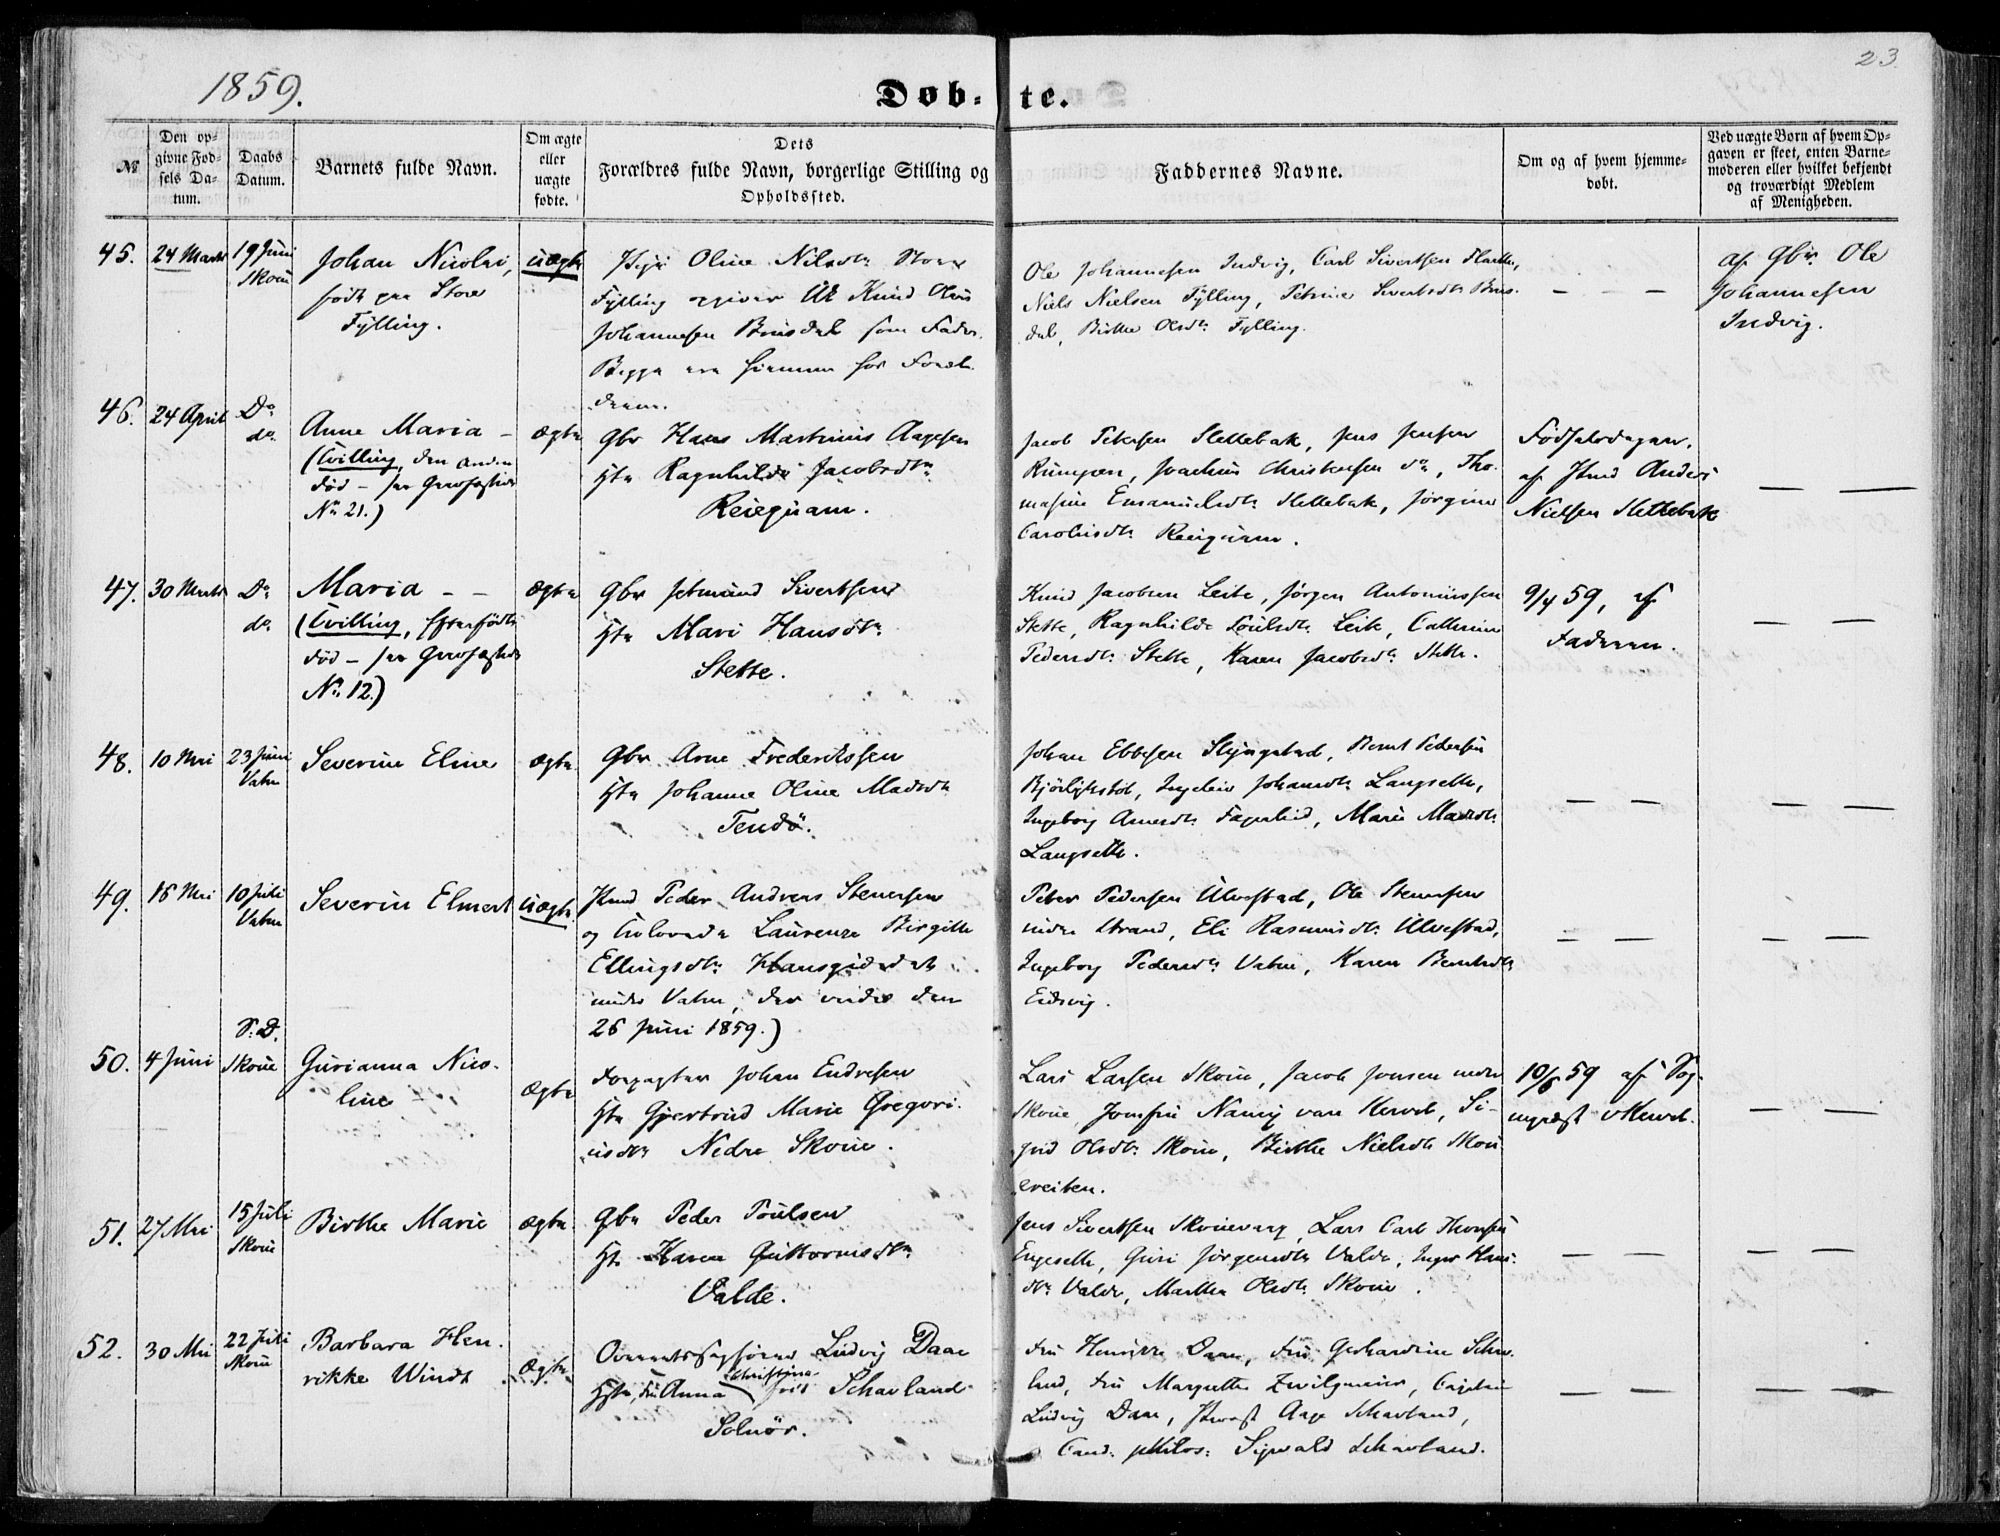 1859.
Døb-
te.
23.
№
Den op-
givne Fød-
sels Da-
tum.
Daabs
Datum.
Barnets fulde Navn.
Om ægte
eller
uægte
fødte.
Dets
Forældres fulde Navn, borgerlige Stilling og
Opholdssted.
Faddernes Navne.
Om og af hvem hjemme-
døbt.
Ved uægte Børn af hvem Op-
gaven er skeet, enten Barne-
moderen eller hvilket bekjendt
og troværdigt Medlem
af Menigheden.
45.
24 Marts
19 Juni
Skoue
Johan Nicolai,
født paa Store
Fylling.
uægte
Pige Oline Nilsdtr Store
Fylling opgiver Uk Knud Olaus
Johannesen Brusdal som Fader.
Begge ere hjemme hos Foræl-
drene.
Ole Johannesen Indvig, Carl Sivertsen
Niels Nielsen Fylling, Petrine Sivertsdtr Brus-
dal, Birthe Olsdtr Fylling.
— —
af Gbr. Ole
Johannesen
Indvig.
46.
24 April
Do
do.
Anne Maria —
(Tvilling, den anden
død — see Gravfæstede
No 21.)
ægte
Gbr Hans Martinus Aagesen
Hu Ragnhilde Jacobsdtr
Reiequam.
Jacob Petersen Slettebak, Jens Jensen
Joachim Christensen do, Tho-
masine Emanuelsdtr Slettebak, Jørgine
Carolusdtr Reiequam.
Fødselsdagen,
af Anders
Nielsen Slettebak
— —
47.
30 Marts
Do
do.
Maria — —
(Tvilling, Efterfødte
død — see Gravfæstede
No 12.)
ægte
Gbr Jetmund Sivertsen
Hu Mari Hansdtr
Stette.
Knud Jacobsen Leite, Jørgen Antoniussen
Stette, Ragnhilde Poulsdtr Leite, Cathrine
Pedersdtr Stette, Karen Jacobsdtr Stette.
9/4 59, af
Faderen.
— —
48.
10 Mai
23 Juni
Vatne
Severine Eline
ægte
Gbr Arne Frederikssen
Hu Johanne Oline Madsdtr
Tendø.
Johan Ebbesen Slyngstad, Bernt Pedersen
Ingeleiv Johansdtr Langsette,
Ingeborg Arnesdtr Fagerlid, Marie Madsdtr
Langsette.
— —
— —
49.
18 Mai
10 Juli
Vatne
Severin Elmert
uægte
Peder Andreas Stenersen
og Laurenze Birgitte
Ellingsdtr Hansgjerdet
under Vatne, den
26 Juni 1859.)
Peter Pedersen Ulvestad, Ole Stenersen
under Strand, Eli Rasmusdtr Ulvestad,
Ingeborg Pedersdtr Vatne, Karen Berntsdtr
Eidsvig.
— —
— —
50.
4 Juni
S. D.
Skoue
Gurianna Nico-
line
ægte
Forpagter Johan Endresen
Hu Gjertrud Marie Gregori-
usdtr Nedre Skoue.
Lars Larsen Skoue, Jacob Jonsen nedre
Skoue, Jomfru Nancy van Kervel, Si-
grid Olsdtr Skoue, Birthe Nielsdtr Skou-
reiten.
10/6 59 af Sog-
nepræst vKervel.
— —
51.
27 Mai
15 Juli
Skoue
Birthe Marie
ægte
Gbr Peder Poulsen
Hu Karen Guttormsdtr
Valde.
Jens Sivertsen Skouevaag, Lars Carl Thomsen
Engesette, Guri Jørgensdtr Valde, Inger Hans-
dtr Valde, Marthe Olsdtr Skoue.
— —
— —
52.
30 Mai
22 Juli
Skoue
Barbara Hen-
rikke Windt
ægte
Overretssagfører Ludvig Daae
Hu Fru Anna Christina Schavland
Solnør.
Fru Henrikke Daae, Fru Gerhardine Schav-
land, Fru Margrethe Zwilgmeier, Captain
Ludvig Daae, Provst Aage Schavland,
Cand. philos: Sigwald Schavland.
— —
— —